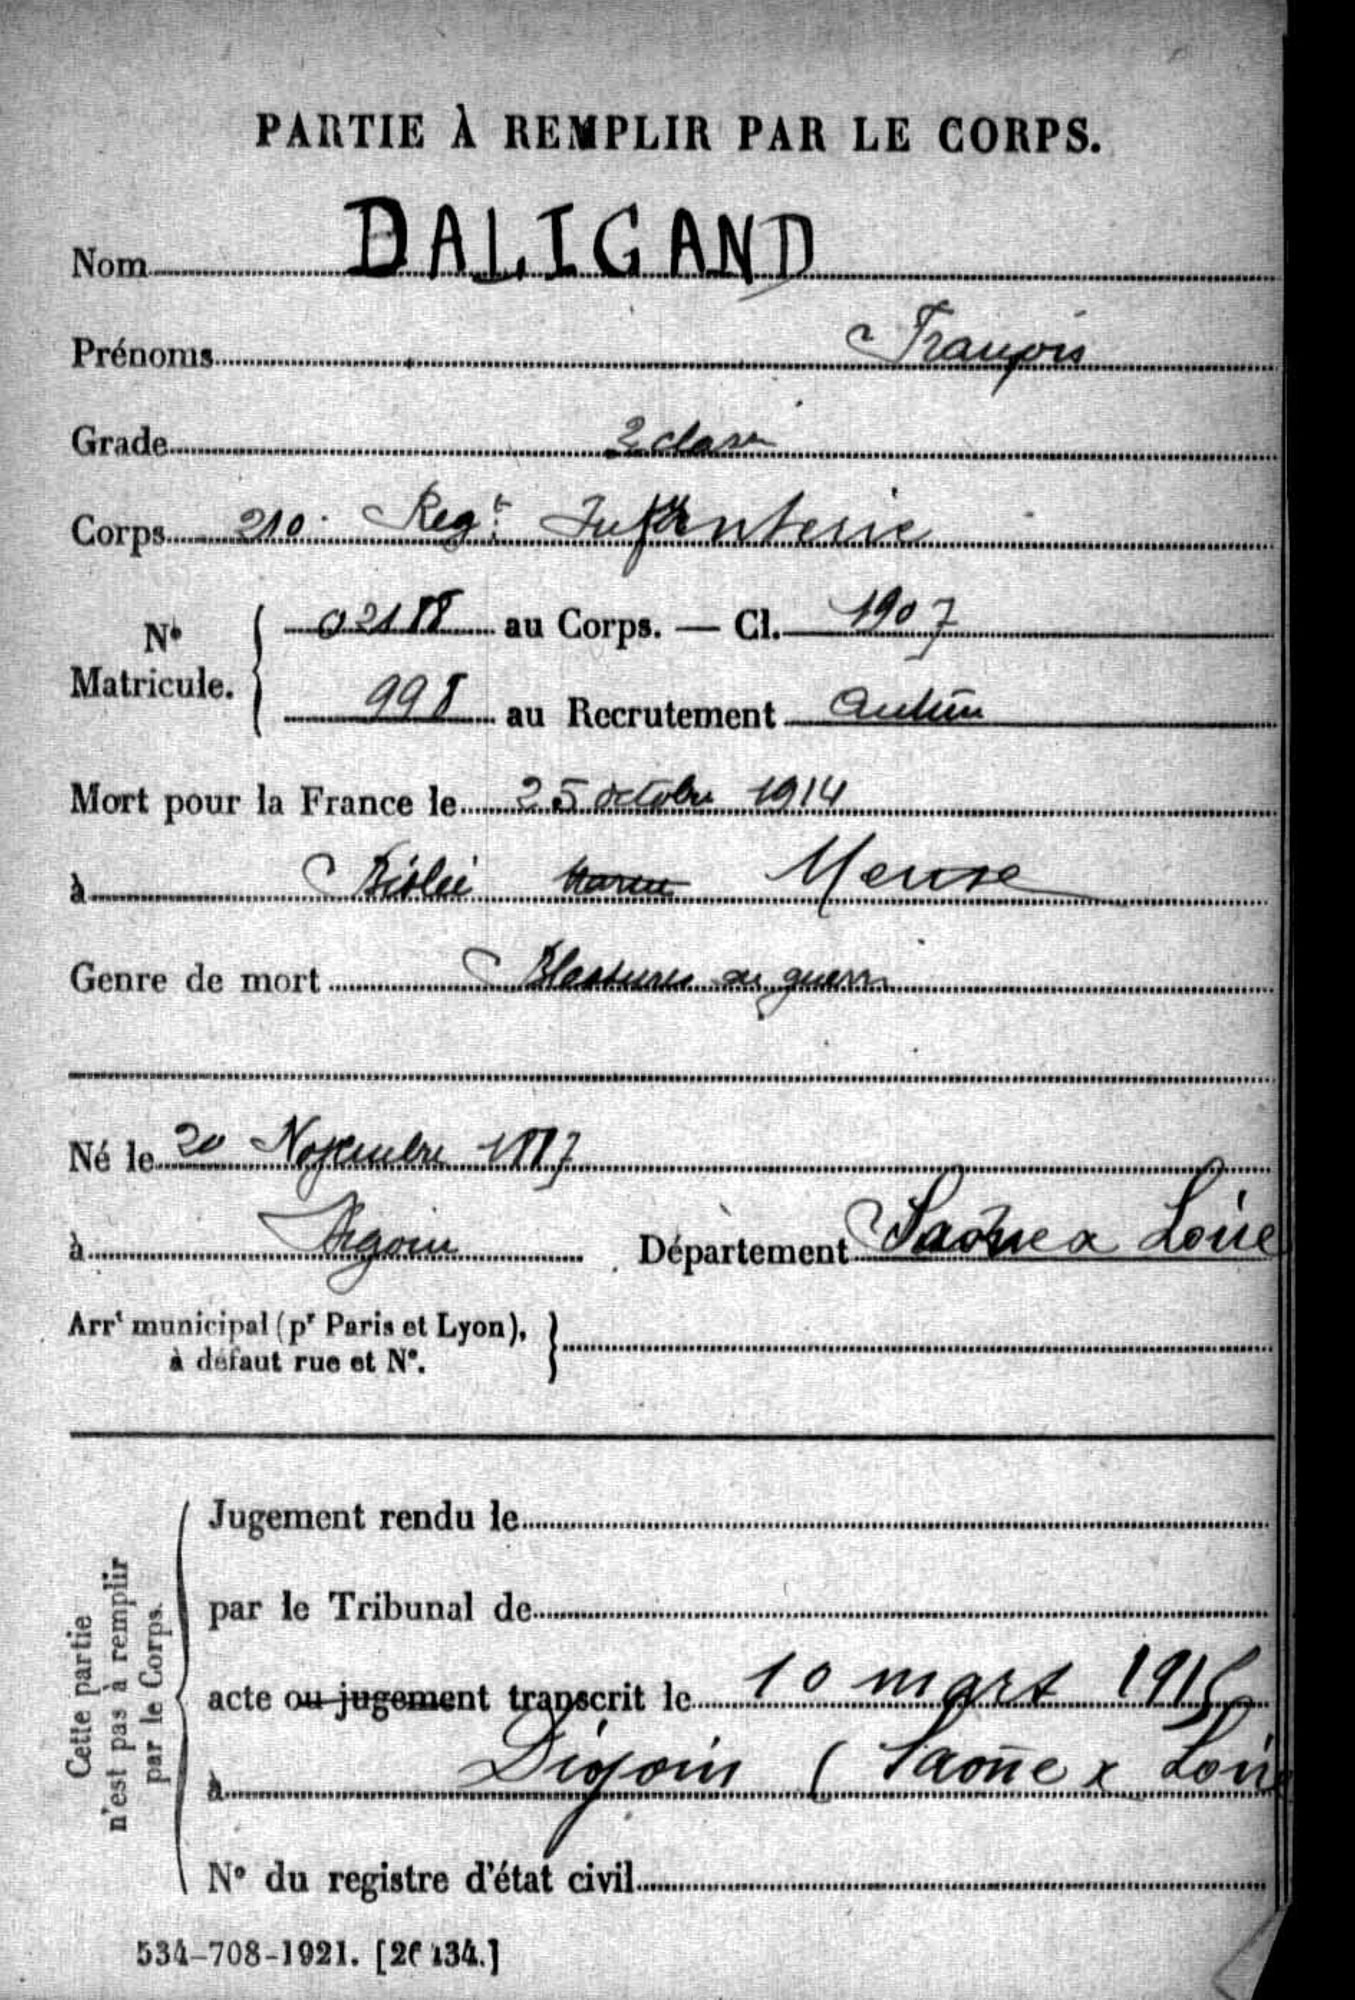 PARTIE À REMPLIR PAR LE CORPS.
Nom DALIGAND
Prénoms François
Grade 2 classe
Corps 210. Regt: Infanterie
No Matricule. { 02188 au Corps. — Cl. 1907
998 au Recrutement Autun
Mort pour la France le 25 octobre 1914
à Bislée Marne Meuse
Genre de mort Blessures de guerre
Né le 20 Novembre 1887
à Digoin Département Saône & Loire
Arrt municipal (pr Paris et Lyon),
à défaut rue et No.
Cette partie n'est pas à remplir par le Corps.
Jugement rendu le
par le Tribunal de
acte ou jugement transcrit le 10 mars 1915
à Digoin (Saône & Loire
No du registre d'état civil
534-708-1921. [26134.]